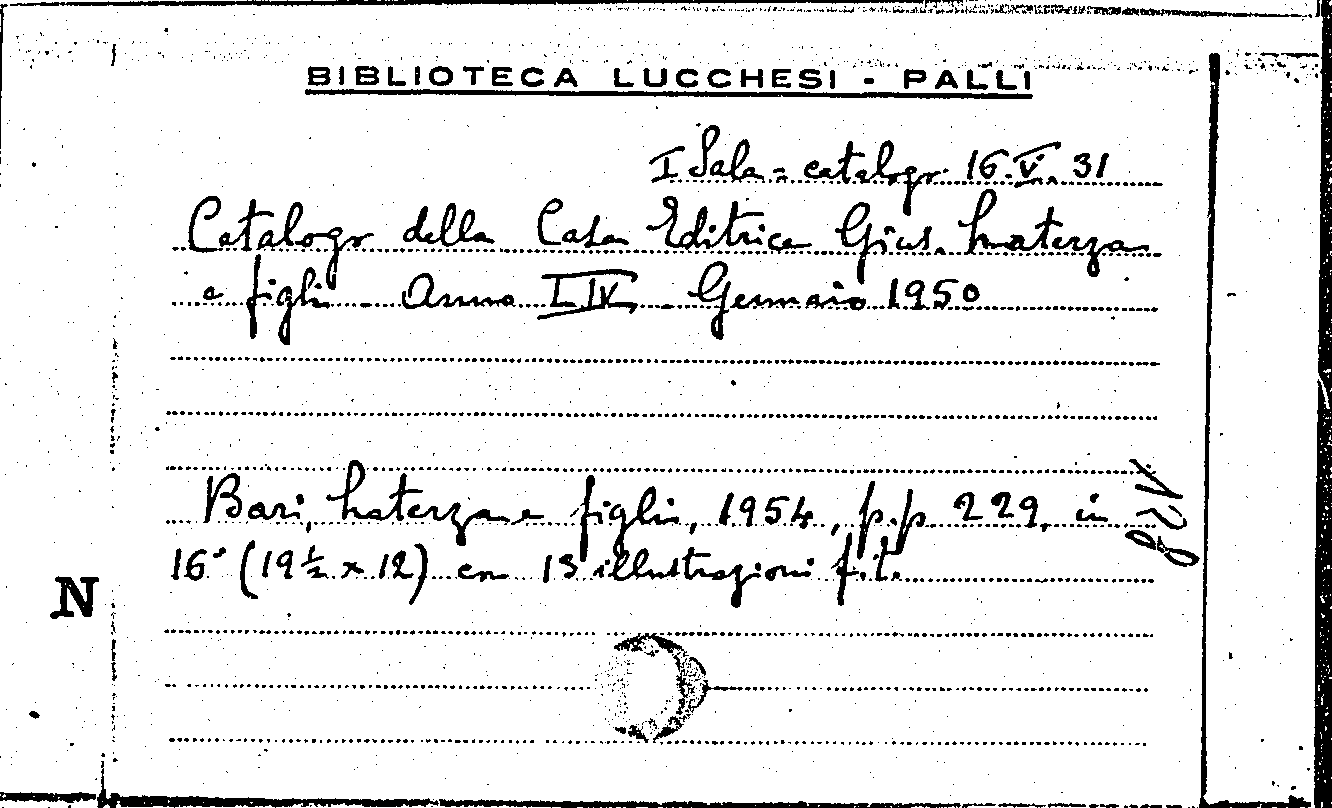 BIBLIOTECA LUCCHESI - PALLI
I Sala = catalogo 16.V. 31
Catalogo della Casa Editrice Gius. Laterza
e figli - Anno LIV - Gennaio 1950
Bari, Laterza e figli, 1954, p.p 229, in
16° (19½ x 12) con 13 illustrazioni f.t.
N